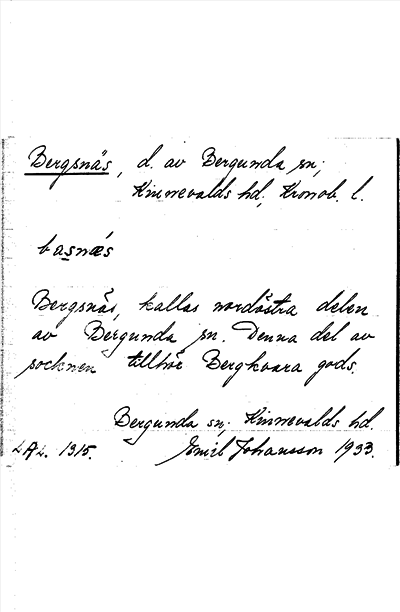 Bergsnäs, d. av Bergunda sn;
Kinnevalds hd, Kronob. l.
basnæs
Bergsnäs, kallas nordöstra delen
av Bergunda sn. Denna del av
socknen tillhör Bergkvara gods.
Bergunda sn; Kinnevalds hd.
LAL. 1315. Emil Johansson 1933.